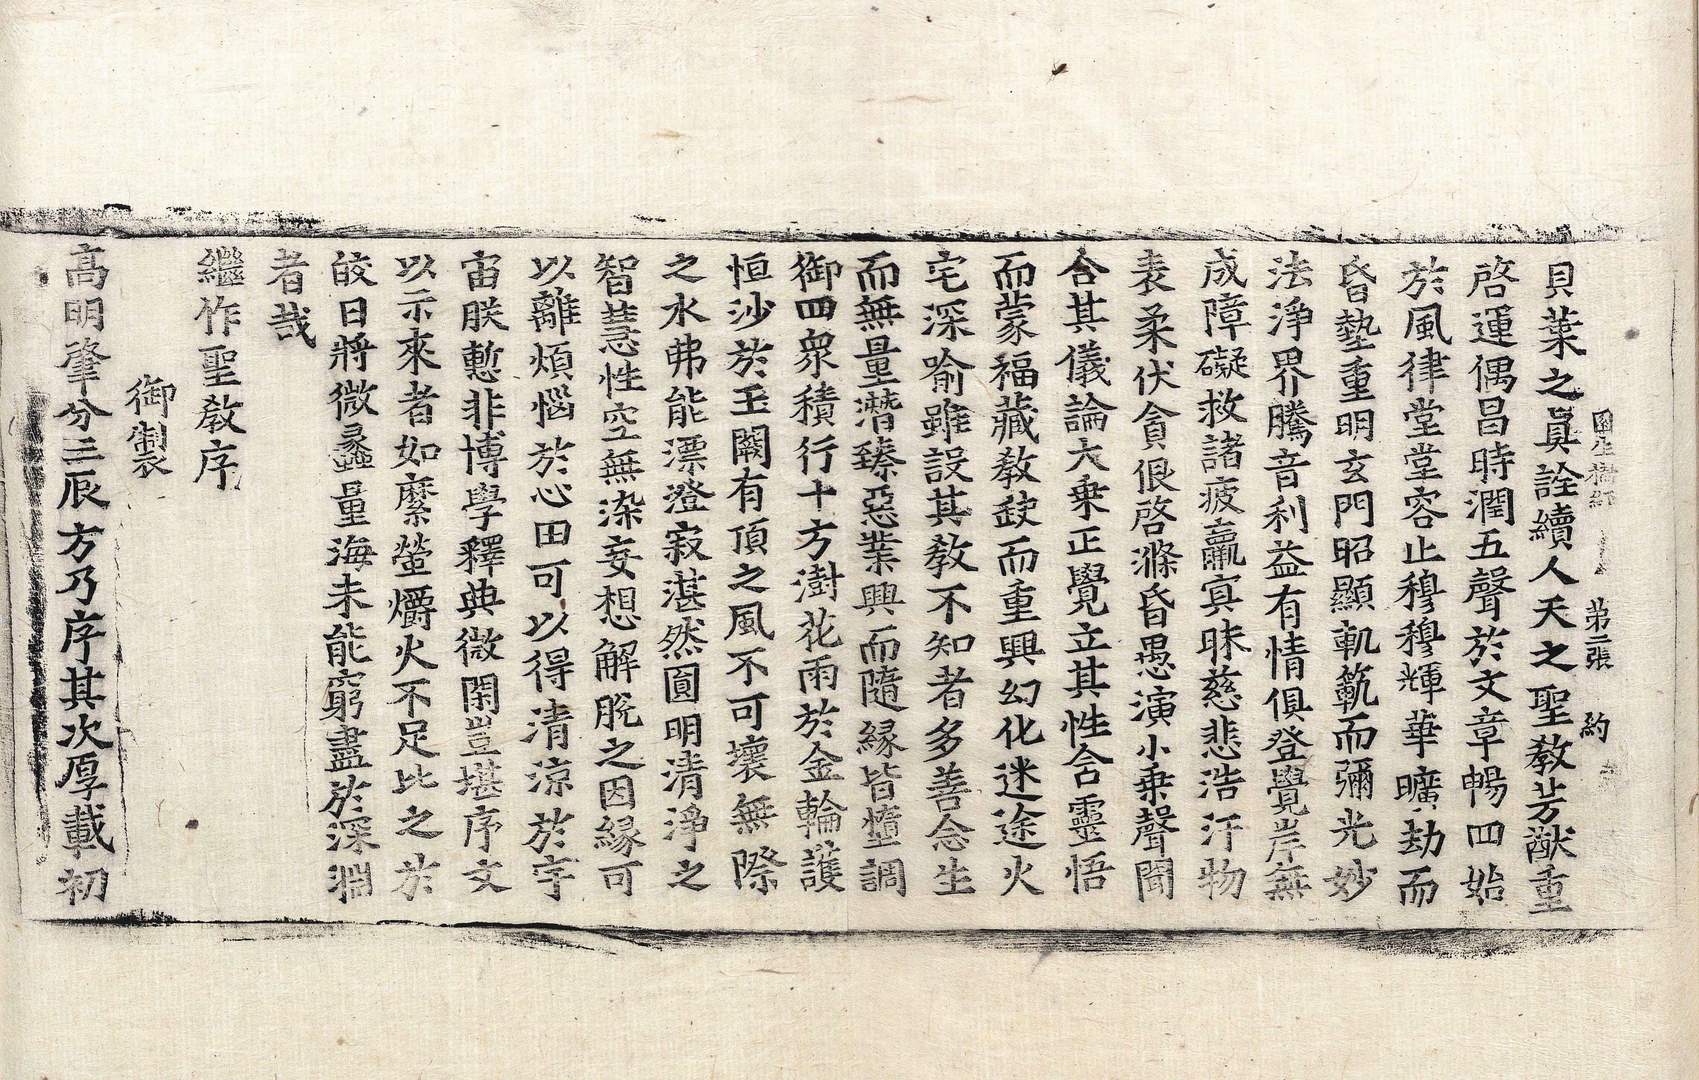 第二張 約
貝葉之眞詮續人天之聖教芳猷重
啓運偶昌時潤五聲於文章暢四始
於風律堂堂容止穆穆輝華曠劫而
昏墊重明玄門昭顯軌範而彌光妙
法淨界騰音利益有情俱登覺岸無
成障礙救諸疲羸寘昧慈悲浩汗物
表柔伏貪佷啓滌昏愚演小乗聲聞
合其儀論大乗正覺立其性含靈悟
而蒙福藏教缺而重興幻化迷途火
宅深喻雖設其教不知者多善念生
而無量潛臻惡業興而隨緣皆墮調
御四衆積行十方澍花雨於金輪護
恒沙於玉闕有頂之風不可壞無際
之水弗能漂澄寂湛然圓明清淨之
智慧性空無染妄想解脫之因緣可
以離煩惱於心田可以得清涼於宇
宙朕慙非博學釋典微閑豈堪序文
以示來者如縻螢爝火不足比之於
皎日將微蠡量海未能窮盡於深淵
者哉
繼作聖教序
御製
高明肇分三辰方乃序其次厚載初